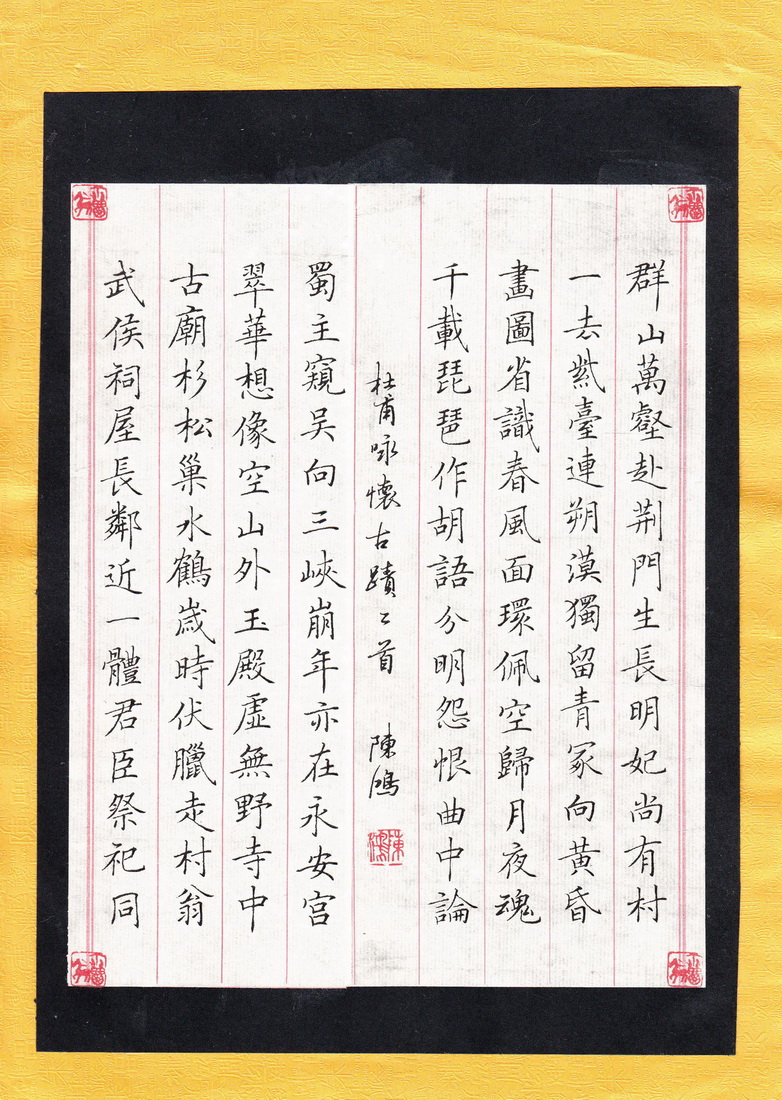 群山萬壑赴荆門生長明妃尚有村
一去紫臺連朔漠獨留青冢向黃昏
畫圖省識春風面環佩空歸月夜魂
千載琵琶作胡語分明怨恨曲中論
杜甫咏懷古蹟二首 陳鴻
陳鴻
蜀主窺吴向三峽崩年亦在永安宫
翠華想像空山外玉殿虛無野寺中
古廟杉松巢水鶴歲時伏臘走村翁
武侯祠屋長鄰近一體君臣祭祀同